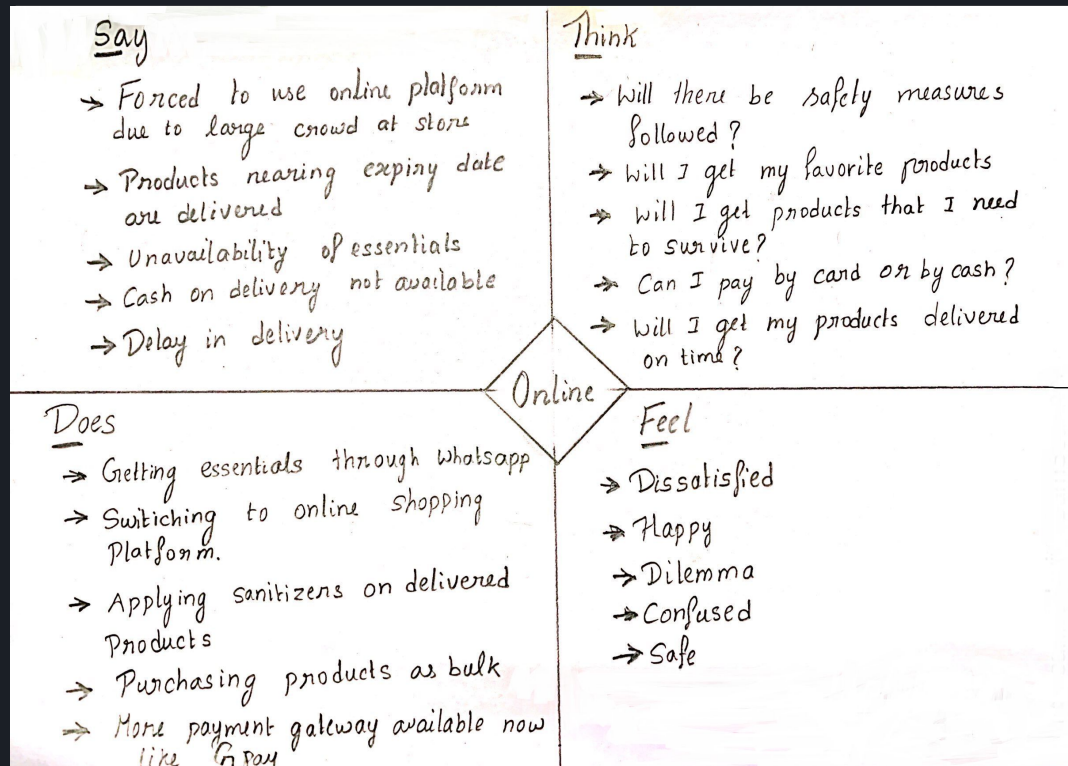 Say
→ Forced to use online platform
due to large crowd at store
→ Products nearing expiry date
are delivered
→ Unavailability of essentials
→ Cash on delivery not available
→ Delay in delivery
Think
→ Will there be safety measures
followed?
→ Will I get my favorite products
→ Will I get products that I need
to survive?
→ Can I pay by card or by cash?
→ Will I get my products delivered
on time?
Online
Does
→ Getting essentials through Whatsapp
→ Switiching to online shopping
Platform.
→ Applying sanitizers on delivered
Products
→ Purchasing products as bulk
→ More payment gateway available now
like G Pay
Feel
→ Dissatisfied
→ Happy
→ Dilemma
→ Confused
→ Safe